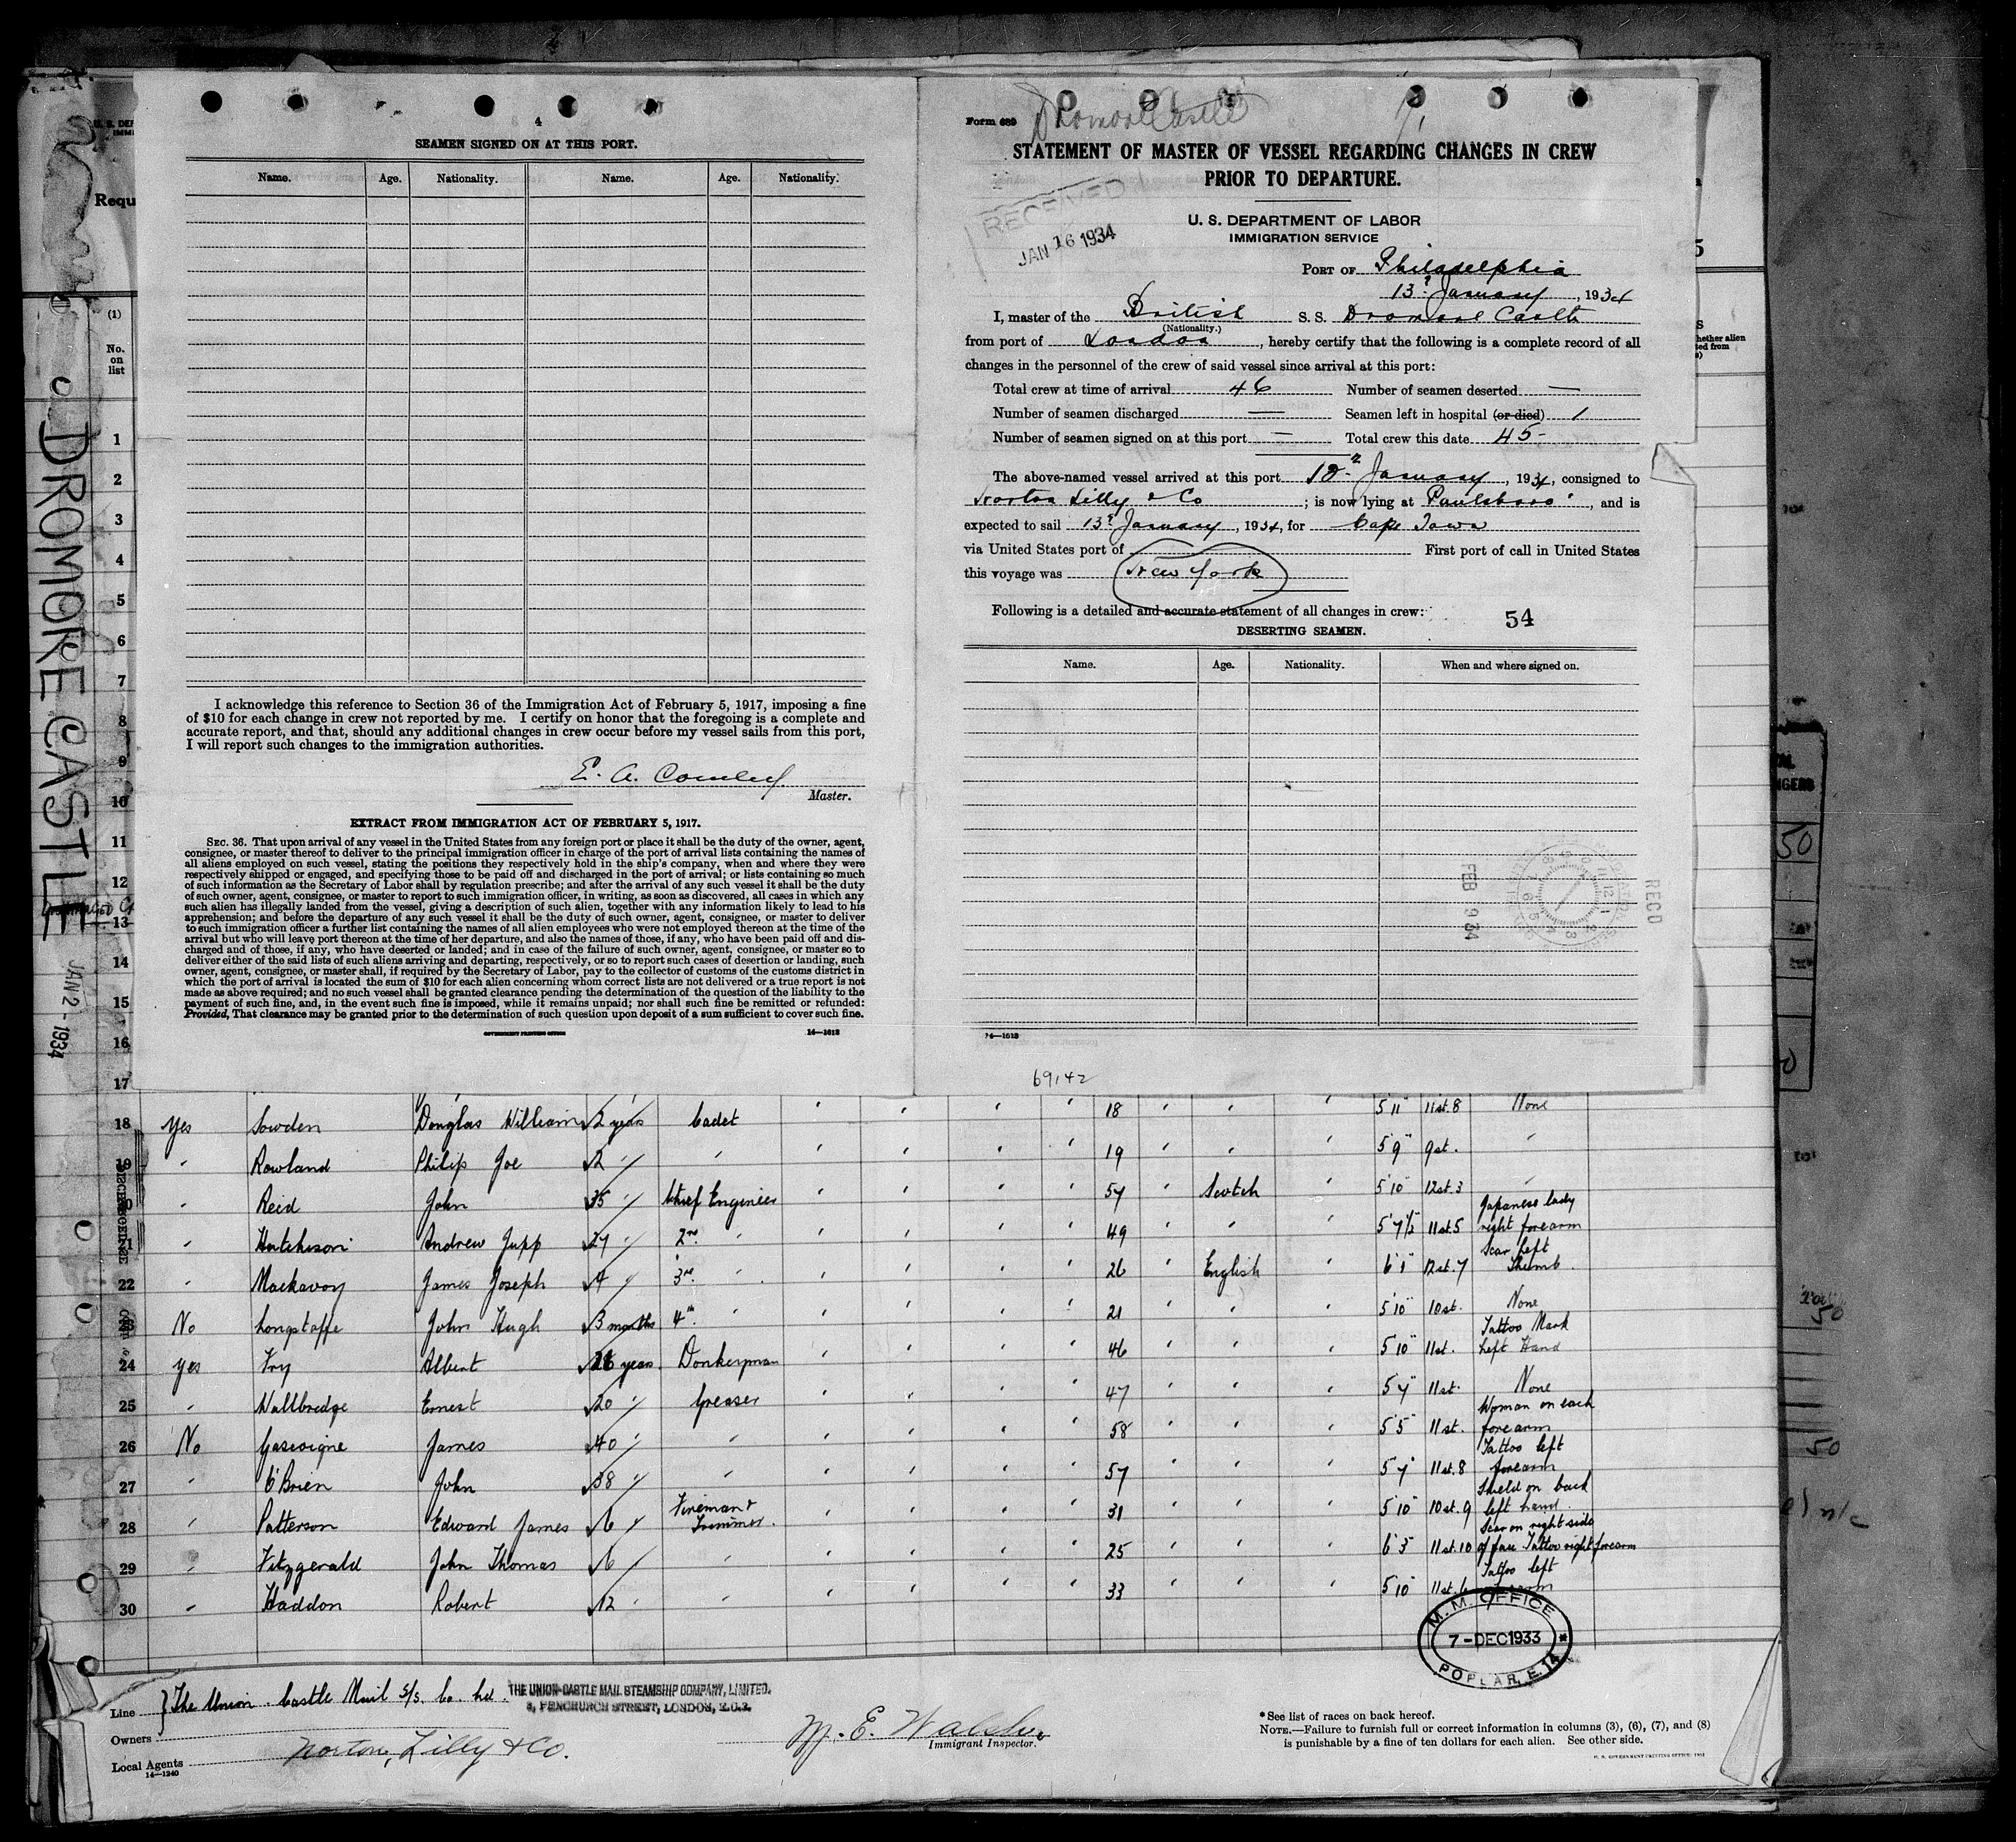 4
SEAMEN SIGNED ON AT THIS PORT.
Name. Age. Nationality. Name. Age. Nationality.
I acknowledge this reference to Section 36 of the Immigration Act of February 5, 1917, imposing a fine
of $10 for each change in crew not reported by me. I certify on honor that the foregoing is a complete and
accurate report, and that, should any additional changes in crew occur before my vessel sails from this port,
I will report such changes to the immigration authorities.
E. A. Comley
Master.
EXTRACT FROM IMMIGRATION ACT OF FEBRUARY 5, 1917.
SEC. 36. That upon arrival of any vessel in the United States from any foreign port or place it shall be the duty of the owner, agent,
consignee, or master thereof to deliver to the principal immigration officer in charge of the port of arrival lists containing the names of
all aliens employed on such vessel, stating the positions they respectively hold in the ship's company, when and where they were
respectively shipped or engaged, and specifying those to be paid off and discharged in the port of arrival; or lists containing so much
of such information as the Secretary of Labor shall by regulation prescribe; and after the arrival of any such vessel it shall be the duty
of such owner, agent, consignee, or master to report to such immigration officer, in writing, as soon as discovered, all cases in which any
such alien has illegally landed from the vessel, giving a description of such alien, together with any information likely to lead to his
apprehension; and before the departure of any such vessel it shall be the duty of such owner, agent, consignee, or master to deliver
to such immigration officer a further list containing the names of all alien employees who were not employed thereon at the time of the
arrival but who will leave port thereon at the time of her departure, and also the names of those, if any, who have been paid off and dis-
charged and of those, if any, who have deserted or landed; and in case of the failure of such owner, agent, consignee, or master so to
deliver either of the said lists of such aliens arriving and departing, respectively, or so to report such cases of desertion or landing, such
owner, agent, consignee, or master shall, if required by the Secretary of Labor, pay to the collector of customs of the customs district in
which the port of arrival is located the sum of $10 for each alien concerning whom correct lists are not delivered or a true report is not
made as above required; and no such vessel shall be granted clearance pending the determination of the question of the liability to the
payment of such fine, and, in the event such fine is imposed, while it remains unpaid; nor shall such fine be remitted or refunded:
Provided, That clearance may be granted prior to the determination of such question upon deposit of a sum sufficient to cover such fine.
GOVERNMENT PRINTING OFFICE 14—1613
Form 689 Dromore Castle
STATEMENT OF MASTER OF VESSEL REGARDING CHANGES IN CREW
PRIOR TO DEPARTURE.
RECEIVED
JAN 16 1934
U. S. DEPARTMENT OF LABOR
IMMIGRATION SERVICE
PORT OF Philadelphia
13th January, 1934
I, master of the British S. S. Dromore Castle
(Nationality.)
from port of London, hereby certify that the following is a complete record of all
changes in the personnel of the crew of said vessel since arrival at this port:
Total crew at time of arrival 46 Number of seamen deserted —
Number of seamen discharged — Seamen left in hospital (or died) 1
Number of seamen signed on at this port — Total crew this date 45-
The above-named vessel arrived at this port 12th January, 1934, consigned to
Norton Lilly & Co; is now lying at Paulsboro', and is
expected to sail 13th January, 1934, for Cape Town
via United States port of First port of call in United States
this voyage was New York
Following is a detailed and accurate statement of all changes in crew:
54
DESERTING SEAMEN.
Name. Age. Nationality. When and where signed on.
RECD
FEB 9 34
14—1613
69142
DROMORE CASTLE
JAN 2 - 1934
Requ
(1)
No.
on
list
1
2
3
4
5
6
7
8
9
10
11
12
13
14
15
16
17
18 Yes Sowden Douglas William 2 years Cadet ' ' ' ' 18 ' ' ' 5'11" 11st.8 None
19 " Rowland Philip Joe 2 " " ' ' ' ' 19 ' ' ' 5'9" 9st. "
" Reid John 35 " Chief Engineer ' ' ' ' 54 ' Scotch ' 5'10" 12st.3 "
" Hutchison Andrew Jupp 27 " 2nd " ' ' ' ' 49 ' ' ' 5'7½" 11st.5 Japanese lady right forearm
22 " Mackavoy James Joseph 4 " 3rd " ' ' ' ' 26 ' English ' 6'1" 12st.7 Scar left Thumb.
No Longstaffe John Hugh 3 months 4th " ' ' ' ' 21 ' ' ' 5'10" 10st. None
24 Yes Fry Albert 26 years Donkeyman ' ' ' ' 46 ' ' ' 5'10" 11st. Tattoo Mark Left Hand
25 " Wallbridge Ernest 20 " Greaser ' ' ' ' 47 ' ' ' 5'7" 11st. None
26 No Gascoigne James 40 " " ' ' ' ' 58 ' ' ' 5'5" 11st. Woman on each forearm
27 " O'Brien John 38 " " ' ' ' ' 57 ' ' ' 5'7" 11st.8 Tattoo left forearm
28 " Patterson Edward James 6 " Fireman & Trimmer. ' ' ' ' 31 ' ' ' 5'10" 10st.9 Shield on back left hand.
29 " Fitzgerald John Thomas 6 " " ' ' ' ' 25 ' ' ' 6'3" 11st.10 Scar on right side of face Tattoo right forearm
30 " Haddon Robert 12 " " ' ' ' ' 33 ' ' ' 5'10" 11st.6 Tattoo left forearm
M. M. OFFICE
7 - DEC 1933
POPLAR, E. 14
Line } The Union-Castle Mail S/S. Co. Ld. THE UNION-CASTLE MAIL STEAMSHIP COMPANY, LIMITED.
3, FENCHURCH STREET, LONDON, E.C.3.
Owners
Local Agents Norton, Lilly & Co.
14—1240
Immigrant Inspector.
* See list of races on back hereof.
NOTE.—Failure to furnish full or correct information in columns (3), (6), (7), and (8)
is punishable by a fine of ten dollars for each alien. See other side.
50
50
50